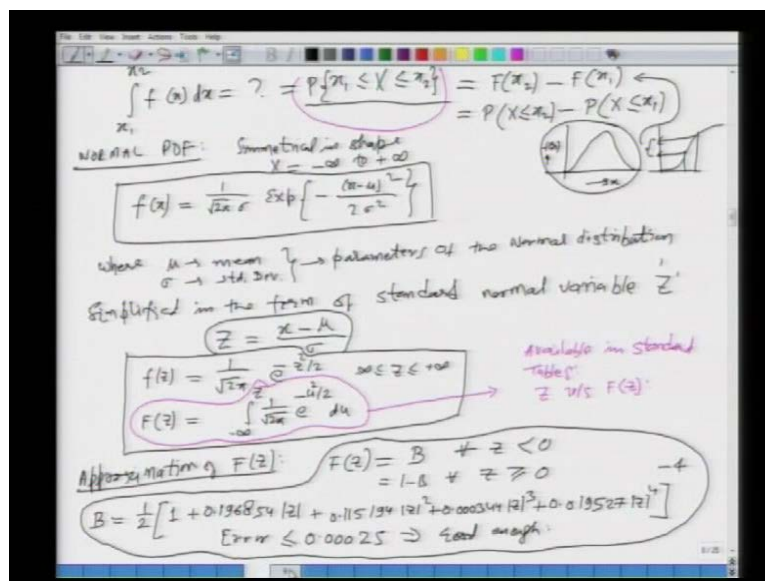 File Edit View Insert Actions Tools Help
x2
∫ f(x) dx = ? = P{x1 ≤ X ≤ x2} = F(x2) - F(x1)
x1
= P(X ≤ x2) - P(X ≤ x1)
NORMAL PDF: Symmetrical in shape
X = -∞ to +∞
f(x)
→x
f(x) = 1/√2π σ Exp{-(x-μ)²/2σ²}
where μ → mean } → parameters of the Normal distribution
σ → Std. Dev.
Simplified in the form of standard normal variable 'Z'
Z = x-μ/σ
f(z) = 1/√2π e^-z²/2 ∞ ≤ z ≤ +∞
F(z) = ∫-∞^z 1/√2π e^-u²/2 du
Available in standard
Tables:
Z v/s F(z):
Approximation of F(z): F(z) = B ∀ z < 0
= 1-B ∀ z ≥ 0 -4
B = 1/2 [1 + 0.196854 |z| + 0.115194 |z|² + 0.000344 |z|³ + 0.019527 |z|⁴]
Error ≤ 0.00025 ⇒ Good enough.